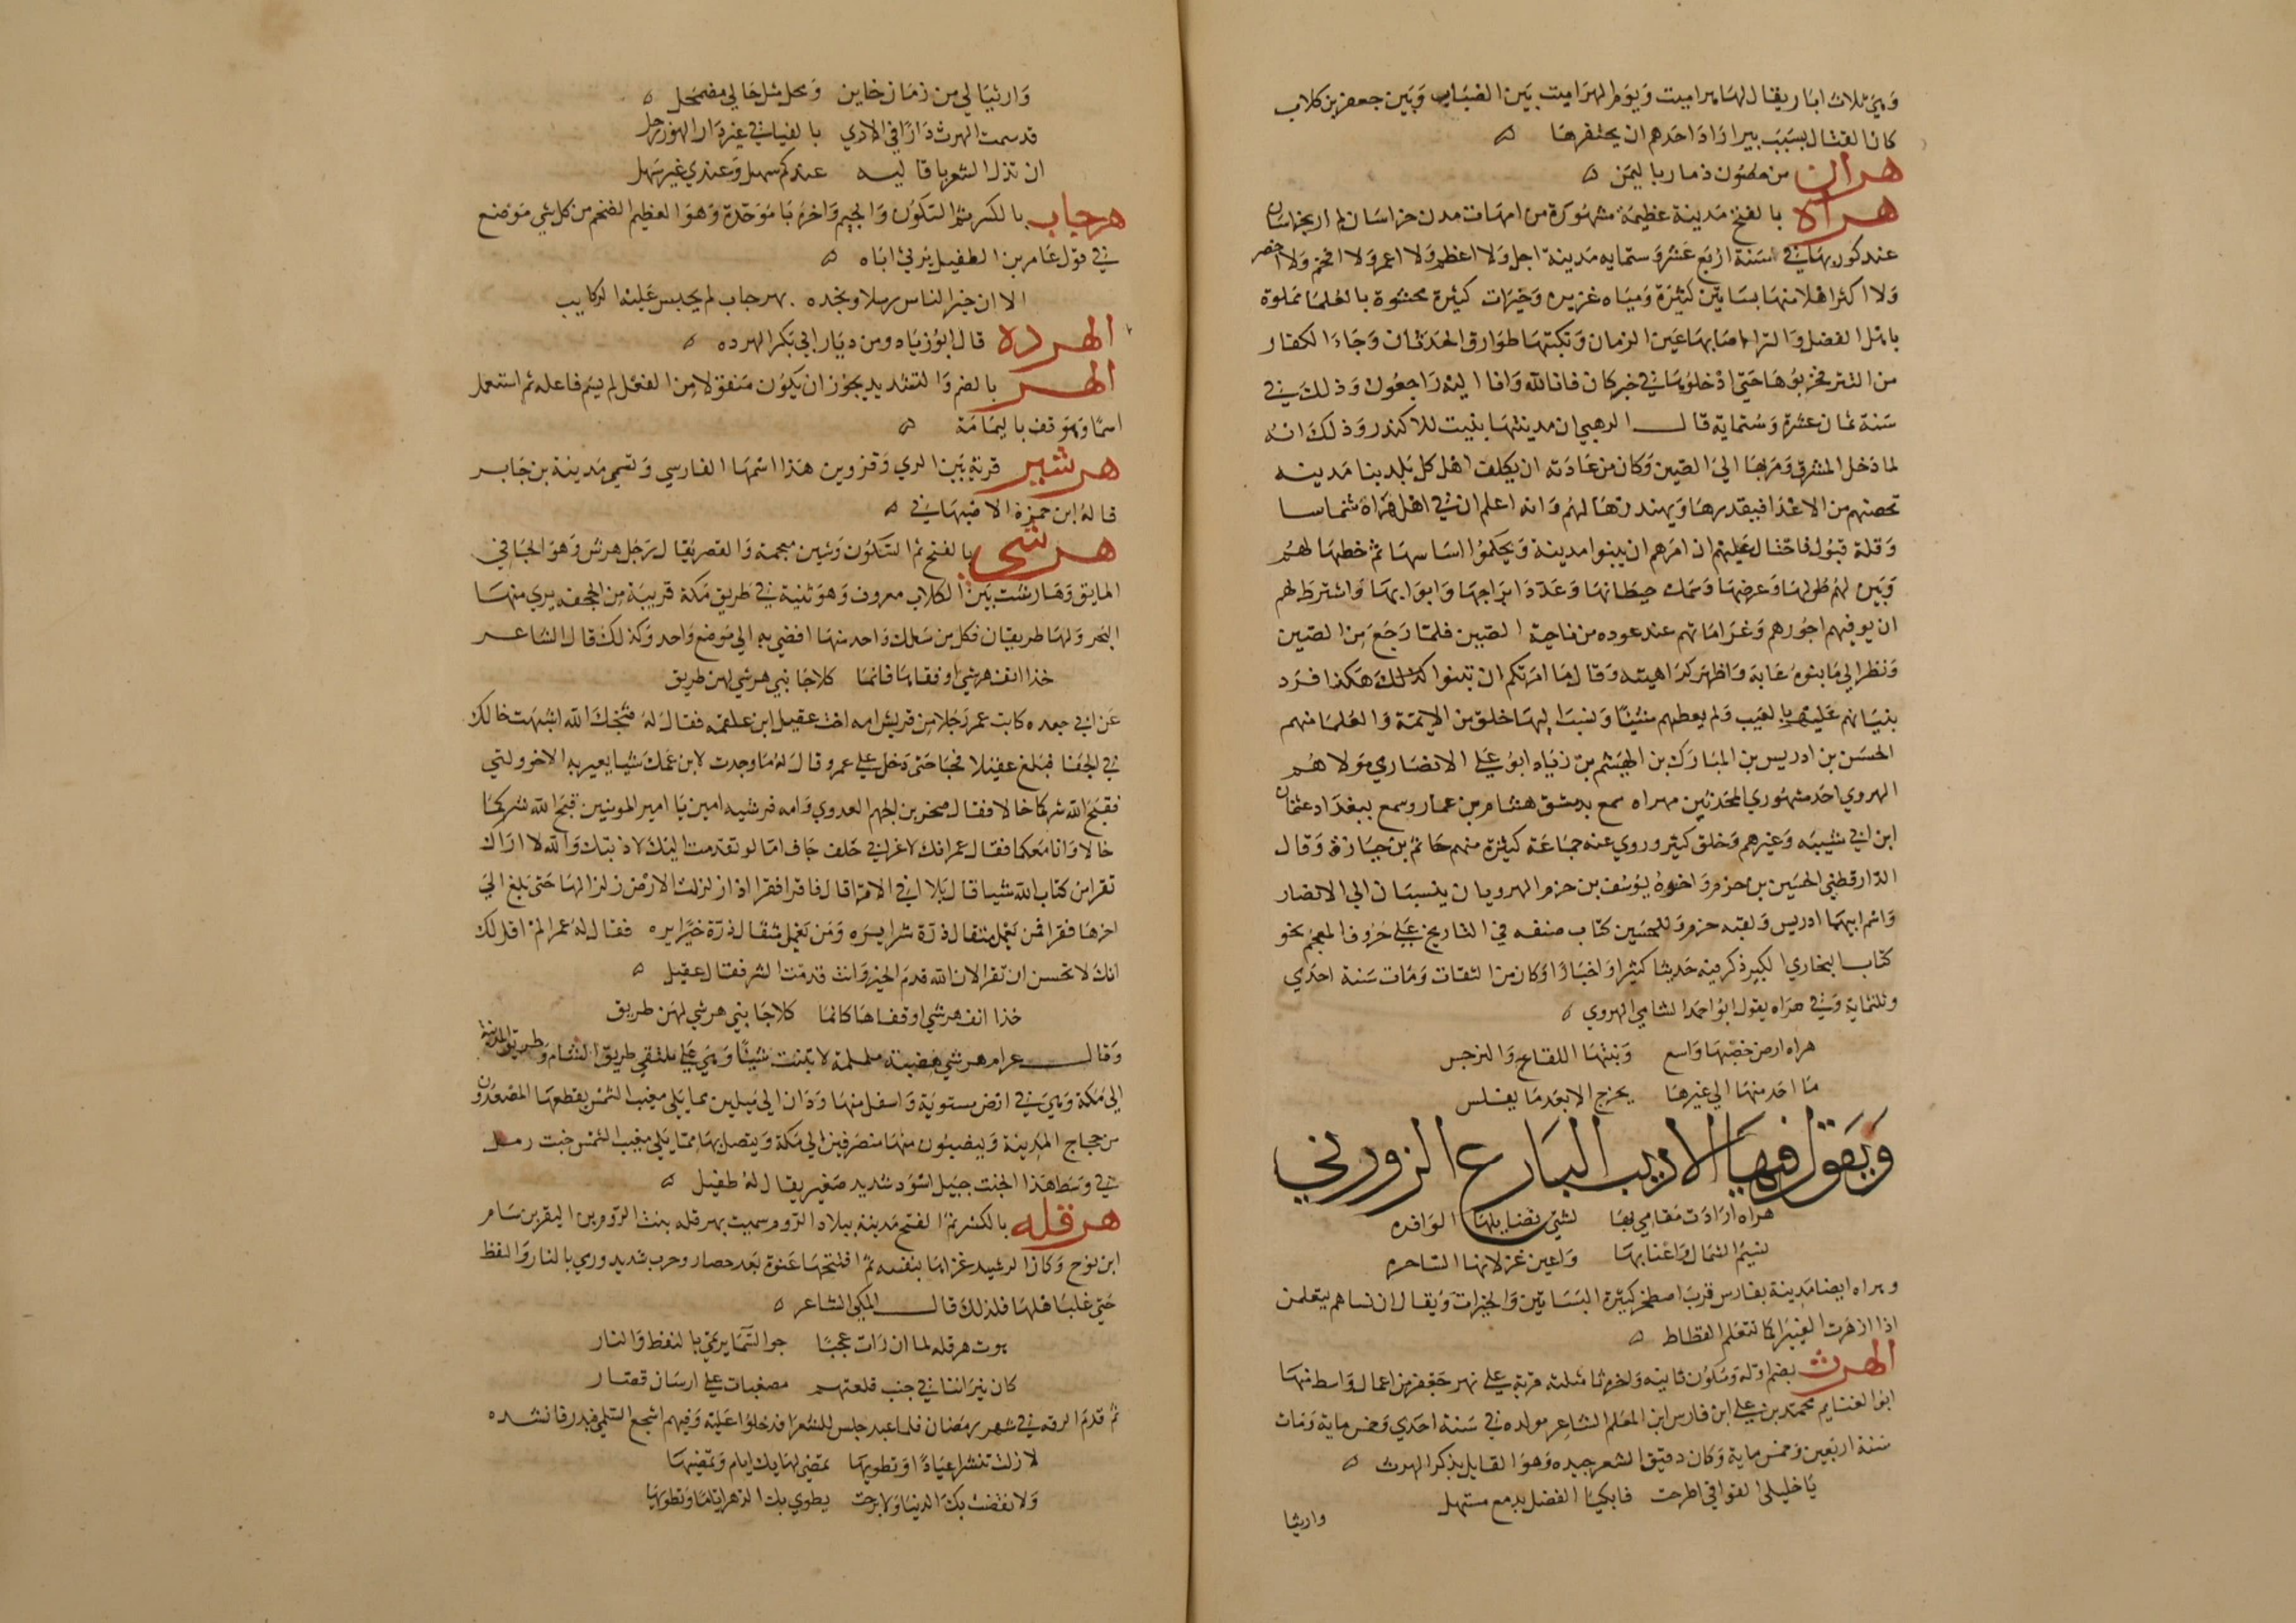 وهي ثلاث ابار يقال لها هراميت ويوم الهراميت بين الضباب وبين جعفر بن كلاب
كان القتال بسبب بير اراد احدهم ان يحتفرها
هران من حصون ذمار باليمن
هراة بالفتح مدينة عظيمة مشهورة من امهات مدن خراسان لم ار بخراسان
عند كوني بها في سنة اربع عشر وستمايه مدينة اجل ولا اعظم ولا اعمر ولا افخم ولا احضر
ولا اكثر اهلا منها بساتين كثيرة ومياه غزيره وخيرات كثيرة محشوة بالعلما مملوة
باهل الفضل والثرا اصابها عين الزمان ونكبتها طوارق الحدثان وجاءا لكفار
من التتر فخربوها حتى ادخلوها في خبر كان فانا لله وانا اليه راجعون وذلك في
سنة ثمان عشرة وستماية قال الرهبي ان مدينتها بنيت للاسكندر وذلك انه
لما دخل المشرق ومر بها الى الصين وكان من عادته ان يكلف اهل كل بلد بنا مدينه
تحصنهم من الاعدا فيقدرها ويهندزها لهم وانه اعلم ان في اهل هراة شماسا
وقلة قبول فاحتال عليهم ان امرهم ان يبنوا مدينة ويحكموا اساسها ثم خطها لهم
وبين لهم طولها وعرضها وسمك حيطانها وعدد ابراجها وابوابها واشترط لهم
ان يوفيهم اجورهم وغراماتهم عند عوده من ناحية الصين فلما رجع من الصين
ونظر الى ما بنوه عابه واظهر كراهيته وقال ما امرتكم ان تبنوا كذلك هكذا فرد
بنيانهم عليهم بالعيب ولم يعطهم شيئا ونسب اليها خلق من الايمة والعلما منهم
الحسن بن ادريس بن المبارك بن الهيثم بن زياد ابو علي الانصاري مولاهم
الهروي احد مشهوري المحدثين بهراه سمع بدمشق هشام بن عمار وسمع ببغداد عثمان
ابن ابي شيبه وغيرهم وخلق كثير وروي عنه جماعة كثيرة منهم حاتم بن حبان وقال
الدارقطني الحسين بن حزم واخوه يوسف بن حزم الهرويان ينسبان الى الانصار
واسم ابيهما ادريس ولقبه حزم وللحسين كتاب صنفه في التاريخ على حروف المعجم نحو
كتاب البخاري الكبير ذكر فيه حديثا كثيرا واخبارا وكان من الثقات ومات سنة احدي
وثلثماية وفي هراه يقول ابو احمد السامي الهروي
هراه ارض خصبها واسع وبنتها اللقاح والنرجس
ما احد منها الى غيرها يخرج الا بعد ما يفلس
ويقول فيها الاديب البارع الزوزني
هراه اردت مقامي بها لشتى فضايلها الوافره
نسيم الشمال واعنابها واعين غزلانها الساحره
وهراه ايضا مدينة بفارس قرب اصطخر كثيرة البساتين والخيرات ويقال ان نساهم يغتلمن
اذا ازهرت الغبيرا كما تغتلم القطاط
الهرث بضم اوله وسكون ثانيه واخره ثا مثلثه قرية على نهر جعفر من اعمال واسط منها
ابو الغنايم محمد بن علي ابن فارس ابن المعلم الشاعر مولده في سنة احدي وخمس ماية ومات
سنة اربعين وخمس ماية وكان دقيق الشعر جيده وهو القايل يذكر الهرث
يا خليلي القوا في اطرحت فابكيا الفضل بدمع مستهل
وارثيا
وارثيا لي من زمان خاين ومحل مثل حالي مضمحل
قد سمت الهرث دارا في الاذي بالفيافي غير دار الهون حل
ان تذل الشعر يا قاليه عندكم سهل وعندي غير سهل
هرجاب بالكسر ثم السكون والجيم واخره با موحدة وهو العظيم الضخم من كل شي موضع
في قول عامر بن الطفيل يرثي اباه
الا ان خير الناس رسلا ونجده بهرجاب لم يحبس عليه الركايب
الهرده قال ابو زياد ومن ديار ابي بكر الهرده
الهر بالضم والتشديد يجوز ان يكون منقولا من الفعل لم يسم فاعله ثم استعمل
اسما وهو قف باليمامة
هرشير قرية بين الري وقزوين هذا اسمها الفارسي وتسمى مدينة بن جابر
قاله ابن حمزة الاصبهاني
هرشى بالفتح ثم السكون وشين معجمة والقصر يقال رجل هرش وهو الجافي
المايق وهارشت بين الكلاب معروف وهو ثنية في طريق مكة قريبة من الجحفه يري منها
البحر ولها طريقان فكل من سلك واحد منها افضي به الى موضع واحد وكذلك قال الشاعر
خذا انف هرشى او قفاها فانما كلا جانبي هرشى لهن طريق
عن ابي جعده كاتب عمر رجلا من قريش امه اخت عقيل ابن علقمه فقال له قبحك الله اشبهت خالك
في الجفا فبلغ عقيلا فجا حتى دخل على عمر وقال له ما وجدت لابن عمك شيا يعير به الا خوولتي
فقبح الله شركما خالا فقال صخر بن الجهم العدوي وامه قرشيه امين يا امير المومنين قبح الله شركما
خالا وانا معكما فقال عمر انك لاعرابي جلف جاف اما لو تقدمت اليك لادبتك والله لا اراك
تقرا من كتاب الله شيا قال بلا اني لاقرا قال فاقرا فقرا اذا زلزلت الارض زلزالها حتى بلغ الى
اخرها فقرا فمن يعمل مثقال ذرة شرا يره ومن يعمل مثقال ذرة خيرا يره فقال له عمر الم اقل لك
انك لا تحسن ان تقرا لان الله قدم الخير وانت قدمت الشر فقال عقيل
خذا انف هرشى او قفاها كانما كلا جانبي هرشى لهن طريق
وقال عرام هرشى هضبة ململمة لا تنبت شيئا وهي على ملتقي طريق الشام وطريق المدينة
الى مكة وهي في ارض مستوية واسفل منها ودان الى ميلين مما يلي مغيب الشمس يقطعها المصعدون
من حجاج المدينة وينصبون منها منصرفين الى مكة ويتصل بها مما يلي مغيب الشمس خبت رمل
في وسط هذا الخبت جبيل اسود شديد صغير يقال له طفيل
هرقله بالكسر ثم الفتح مدينة ببلاد الروم سميت بهرقله بنت الروم بن اليقز بن سام
ابن نوح وكان الرشيد غزاها بنفسه ثم افتتحها عنوة بعد حصار وحرب شديد ورمي بالنار والنفط
حتى غلب اهلها فلذلك قال المكي الشاعر
هوت هرقله لما ان رات عجبا جو السما يرتمي بالنفط والنار
كان نيراننا في جنب قلعتهم مصبغات على ارسان قصار
ثم قدم الرقه في شهر رمضان فلما عيد جلس للشعرا فدخلوا عليه وفيهم اشجع السلمي فبدر فانشده
لا زلت تنشر اعيادا وتطويها تمضي لها بك ايام وتمضيها
ولا تقضت بك الدنيا ولا برحت يطوي بك الدهر اياما وتطويها